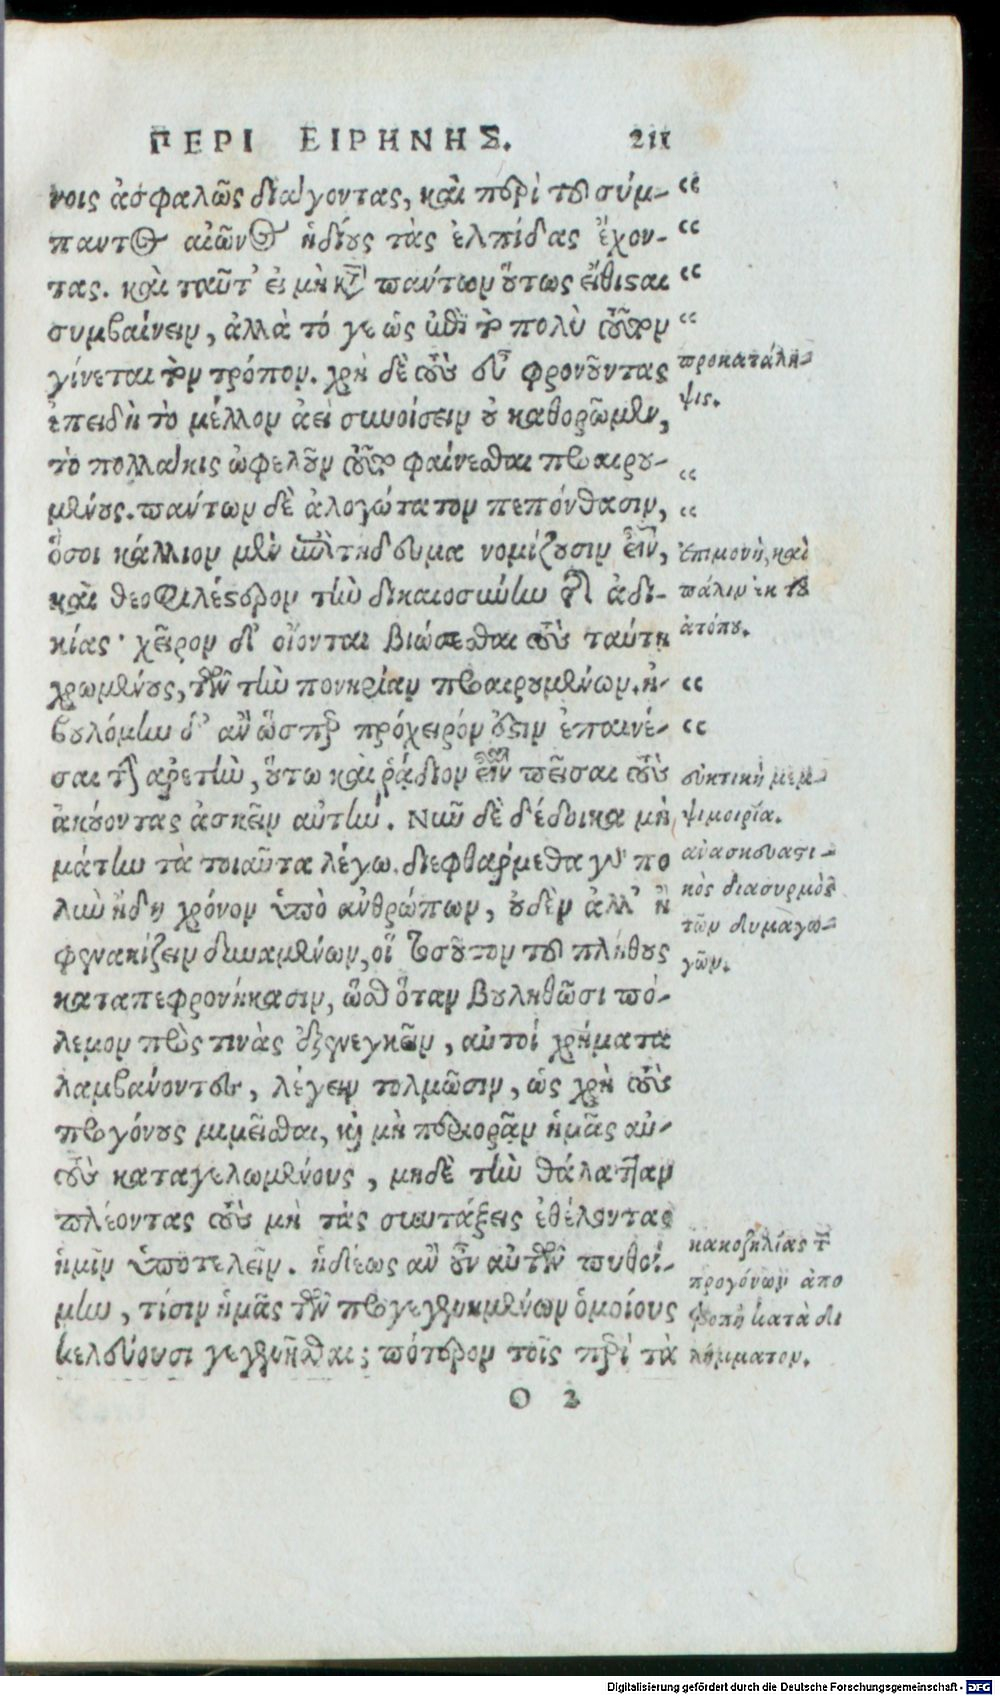 ΠΕΡΙ ΕΙΡΗΝΗΣ. 211
νοις ἀσφαλῶς διάγοντας, καὶ περὶ τοῦ σύμ-
παντος αἰῶνος ἡδίους τὰς ἐλπίδας ἔχον-
τας. καὶ ταῦτ' εἰ μὴ κατὰ πάντων οὕτως εἴθισαι
συμβαίνειν, ἀλλὰ τό γε ὡς ἐπὶ τὸ πολὺ τοῦτον
γίνεται τὸν τρόπον. χρὴ δὲ τοὺς εὖ φρονοῦντας
ἐπειδὴ τὸ μέλλον ἀεὶ συνοίσειν οὐ καθορῶμεν,
τὸ πολλάκις ὠφελοῦν τοῦτο φαίνεσθαι προαιρου-
μένους. πάντων δὲ ἀλογώτατον πεπόνθασιν,
ὅσοι κάλλιον μὲν ἐπιτήδευμα νομίζουσιν εἶναι,
καὶ θεοφιλέστερον τὴν δικαιοσύνην τῆς ἀδι-
κίας· χεῖρον δ' οἴονται βιώσεσθαι τοὺς ταύτῃ
χρωμένους, τῶν τὴν πονηρίαν προαιρουμένων. ἠ-
βουλόμην δ' ἂν ὥσπερ πρόχειρόν ἐστιν ἐπαινέ-
σαι τὴν ἀρετὴν, οὕτω καὶ ῥᾴδιον εἶναι πεῖσαι τοὺς
ἀκούοντας ἀσκεῖν αὐτήν. Νῦν δὲ δέδοικα μὴ
μάτην τὰ τοιαῦτα λέγω. διεφθάρμεθα γὰρ πο
λὺν ἤδη χρόνον ὑπὸ ἀνθρώπων, οὐδὲν ἀλλ' ἢ
φενακίζειν δυναμένων, οἳ τοσοῦτον τοῦ πλήθους
καταπεφρονήκασιν, ὥσθ' ὅταν βουληθῶσι πό-
λεμον πρός τινὰς ἐξενεγκεῖν, αὐτοί χρήματα
λαμβάνοντες, λέγειν τολμῶσιν, ὡς χρὴ τοὺς
προγόνους μιμεῖσθαι, καὶ μὴ περιορᾷν ἡμᾶς αὐ-
τοὺς καταγελωμένους, μηδὲ τὴν θάλατταν
πλέοντας τοὺς μὴ τὰς συντάξεις ἐθέλοντας
ἡμῖν ὑποτελεῖν. ἡδέως ἂν οὖν αὐτῶν πυθοί-
μην, τίσιν ἡμᾶς τῶν προγεγενημένων ὁμοίους
κελεύουσι γεγενῆσθαι; πότερον τοῖς περὶ τὰ
O 2
προκατάλη-
ψις.
ἐπιμονὴ, καὶ
πάλιν ἐκ τοῦ
ἀτόπου.
εὐκτικὴ μεμ-
ψιμοιρία.
ἀνασκευαστι-
κὸς διασυρμὸς
τῶν δημαγω-
γῶν.
κακοζηλίας τῶν
προγόνων ἀπο
τροπὴ κατὰ δι
λήμματον.
Digitalisierung gefördert durch die Deutsche Forschungsgemeinschaft - DFG